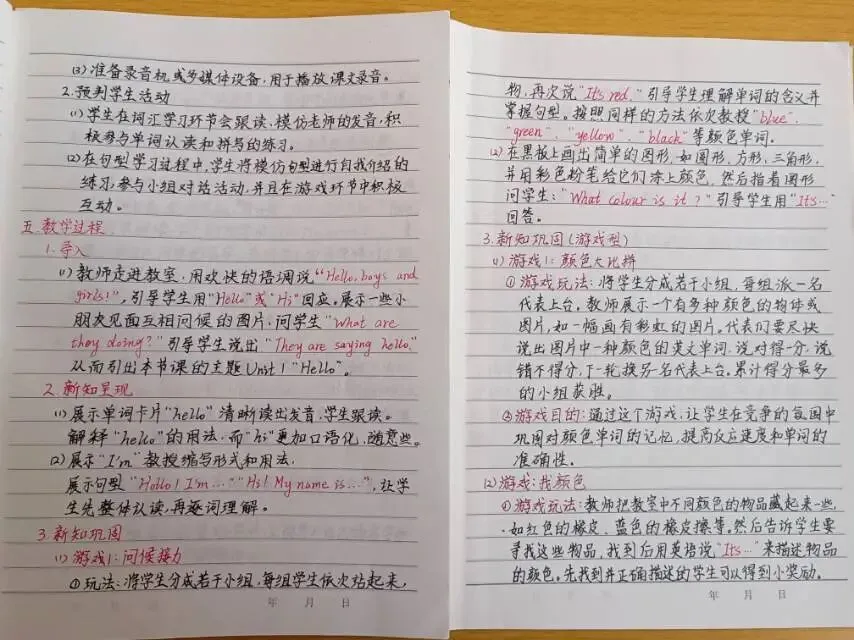 (3)准备录音机或多媒体设备,用于播放课文录音。
2.预判学生活动
(1)学生在词汇学习环节会跟读、模仿老师的发音,积
极参与单词认读和拼写的练习。
(2)在句型学习过程中,学生将模仿句型进行自我介绍的
练习,参与小组对话活动,并且在游戏环节中积极
互动。
五.教学过程
1.导入
(1)教师走进教室,用欢快的语调说"Hello, boys and
girls!",引导学生用"Hello"或"Hi"回应。展示一些小
朋友见面互相问候的图片,问学生"What are
they doing?"引导学生说出"They are saying hello."
从而引出本节课的主题Unit 1 "Hello"。
2.新知呈现
(1)展示单词卡片"hello"清晰读出发音,学生跟读。
解释"hello"的用法,而"hi"更加口语化,随意些。
(2)展示"I'm"教授缩写形式和用法,
展示句型"Hello! I'm…""Hi! My name is…",让学
生先整体认读,再逐词理解。
3.新知巩固
(1)游戏1:问候接力
①玩法:将学生分成若干小组,每组学生依次站起来,
年 月 日
物,再次说"It's red."引导学生理解单词的含义并
掌握句型。按照同样的方法依次教授"blue"、
"green"、"yellow"、"black"等颜色单词。
(2)在黑板上画出简单的图形,如圆形,方形,三角形,
并用彩色粉笔给它们涂上颜色,然后指着图形
问学生:"What colour is it?"引导学生用"It's…"
回答。
3.新知巩固(游戏型)
(1)游戏1:颜色大比拼
①游戏玩法:将学生分成若干小组,每组派一名
代表上台。教师展示一个有多种颜色的物体或
图片,如一幅画有彩虹的图片。代表们要尽快
说出图片中一种颜色的英文单词,说对得一分,说
错不得分,下一轮换另一名代表上台。累计得分最多
的小组获胜。
②游戏目的:通过这个游戏,让学生在竞争的氛围中
巩固对颜色单词的记忆,提高反应速度和单词的
准确性。
(2)游戏:找颜色
①游戏玩法:教师把教室中不同颜色的物品藏起来一些,
如红色的橡皮、蓝色的橡皮擦等。然后告诉学生要
寻找这些物品,找到后用英语说"It's…"来描述物品
的颜色。先找到并正确描述的学生可以得到小奖励。
年 月 日